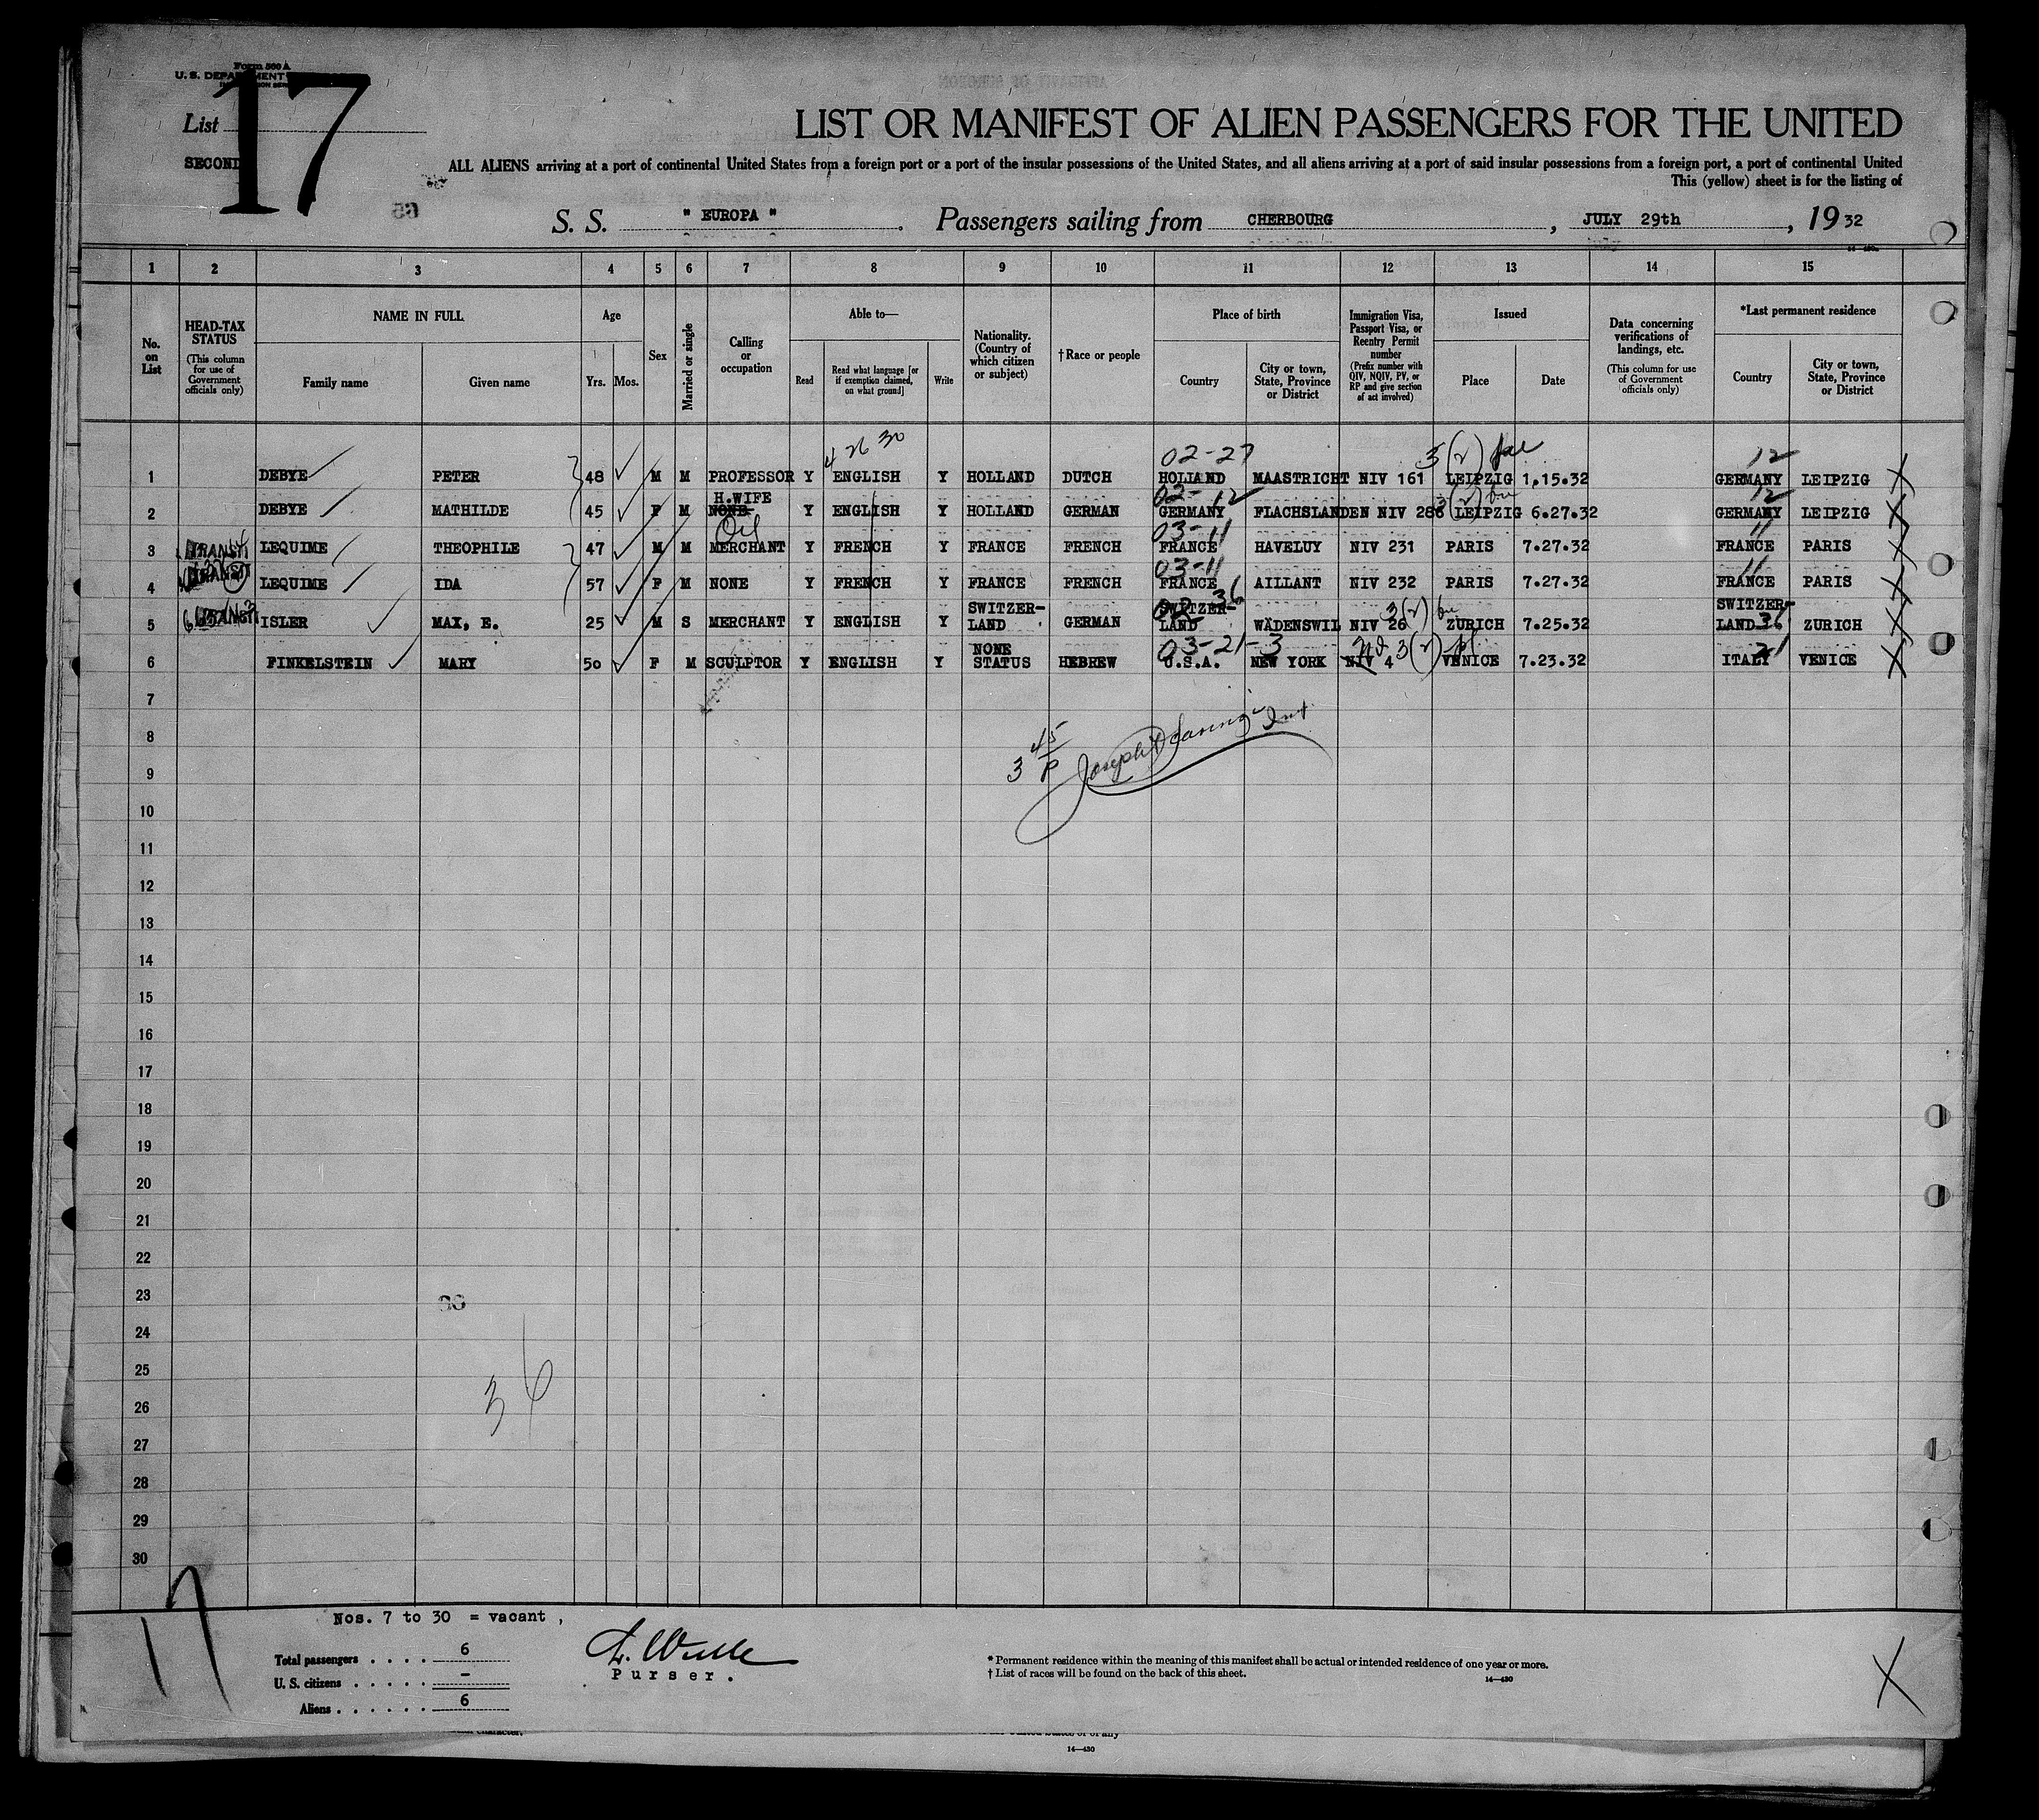 Form 500 A
U. S. DEPARTMENT
List 17
SECOND
LIST OR MANIFEST OF ALIEN PASSENGERS FOR THE UNITED
ALL ALIENS arriving at a port of continental United States from a foreign port or a port of the insular possessions of the United States, and all aliens arriving at a port of said insular possessions from a foreign port, a port of continental United
This (yellow) sheet is for the listing of
S. S. " EUROPA ". Passengers sailing from CHERBOURG, JULY 29th, 1932
1 2 3 4 5 6 7 8 9 10 11 12 13 14 15
No. on List
HEAD-TAX STATUS (This column for use of Government officials only)
NAME IN FULL
Family name
Given name
Age
Yrs. Mos.
Sex
Married or single
Calling or occupation
Able to—
Read
Read what language [or if exemption claimed, on what ground]
Write
Nationality. (Country of which citizen or subject)
†Race or people
Place of birth
Country
City or town, State, Province or District
Immigration Visa, Passport Visa, or Reentry Permit number (Prefix number with QIV, NQIV, PV, or RP and give section of act involved)
Issued
Place
Date
Data concerning verifications of landings, etc. (This column for use of Government officials only)
*Last permanent residence
Country
City or town, State, Province or District
4 26 30 02-27 3(2) 12
1 DEBYE PETER 48 M M PROFESSOR Y ENGLISH Y HOLLAND DUTCH HOLLAND MAASTRICHT NIV 161 LEIPZIG 1.15.32 GERMANY LEIPZIG
H.WIFE 02-12 3(2) 12
2 DEBYE MATHILDE 45 F M NONE Y ENGLISH Y HOLLAND GERMAN GERMANY FLACHSLANDEN NIV 286 LEIPZIG 6.27.32 GERMANY LEIPZIG
Oil 03-11 11
3 TRANSIT LEQUIME THEOPHILE 47 M M MERCHANT Y FRENCH Y FRANCE FRENCH FRANCE HAVELUY NIV 231 PARIS 7.27.32 FRANCE PARIS
03-11 11
4 TRANSIT LEQUIME IDA 57 F M NONE Y FRENCH Y FRANCE FRENCH FRANCE AILLANT NIV 232 PARIS 7.27.32 FRANCE PARIS
36 3(2)
5 TRANSIT ISLER MAX, E. 25 M S MERCHANT Y ENGLISH Y SWITZER-LAND GERMAN SWITZER-LAND WÄDENSWIL NIV 26 ZURICH 7.25.32 SWITZER-LAND 36 ZURICH
03-21-3 3(2) 21
6 FINKELSTEIN MARY 50 F M SCULPTOR Y ENGLISH Y NONE STATUS HEBREW U.S.A. NEW YORK NIV 4 VENICE 7.23.32 ITALY VENICE
7
8
3 45 P Joseph
9
10
11
12
13
14
15
16
17
18
19
20
21
22
23
24
25
26
27
28
29
30
36
17
Nos. 7 to 30 = vacant ,
Total passengers . . . . 6
U. S. citizens . . . . . –
Aliens . . . . . . 6
Purser.
* Permanent residence within the meaning of this manifest shall be actual or intended residence of one year or more.
† List of races will be found on the back of this sheet.
14—430
14—430